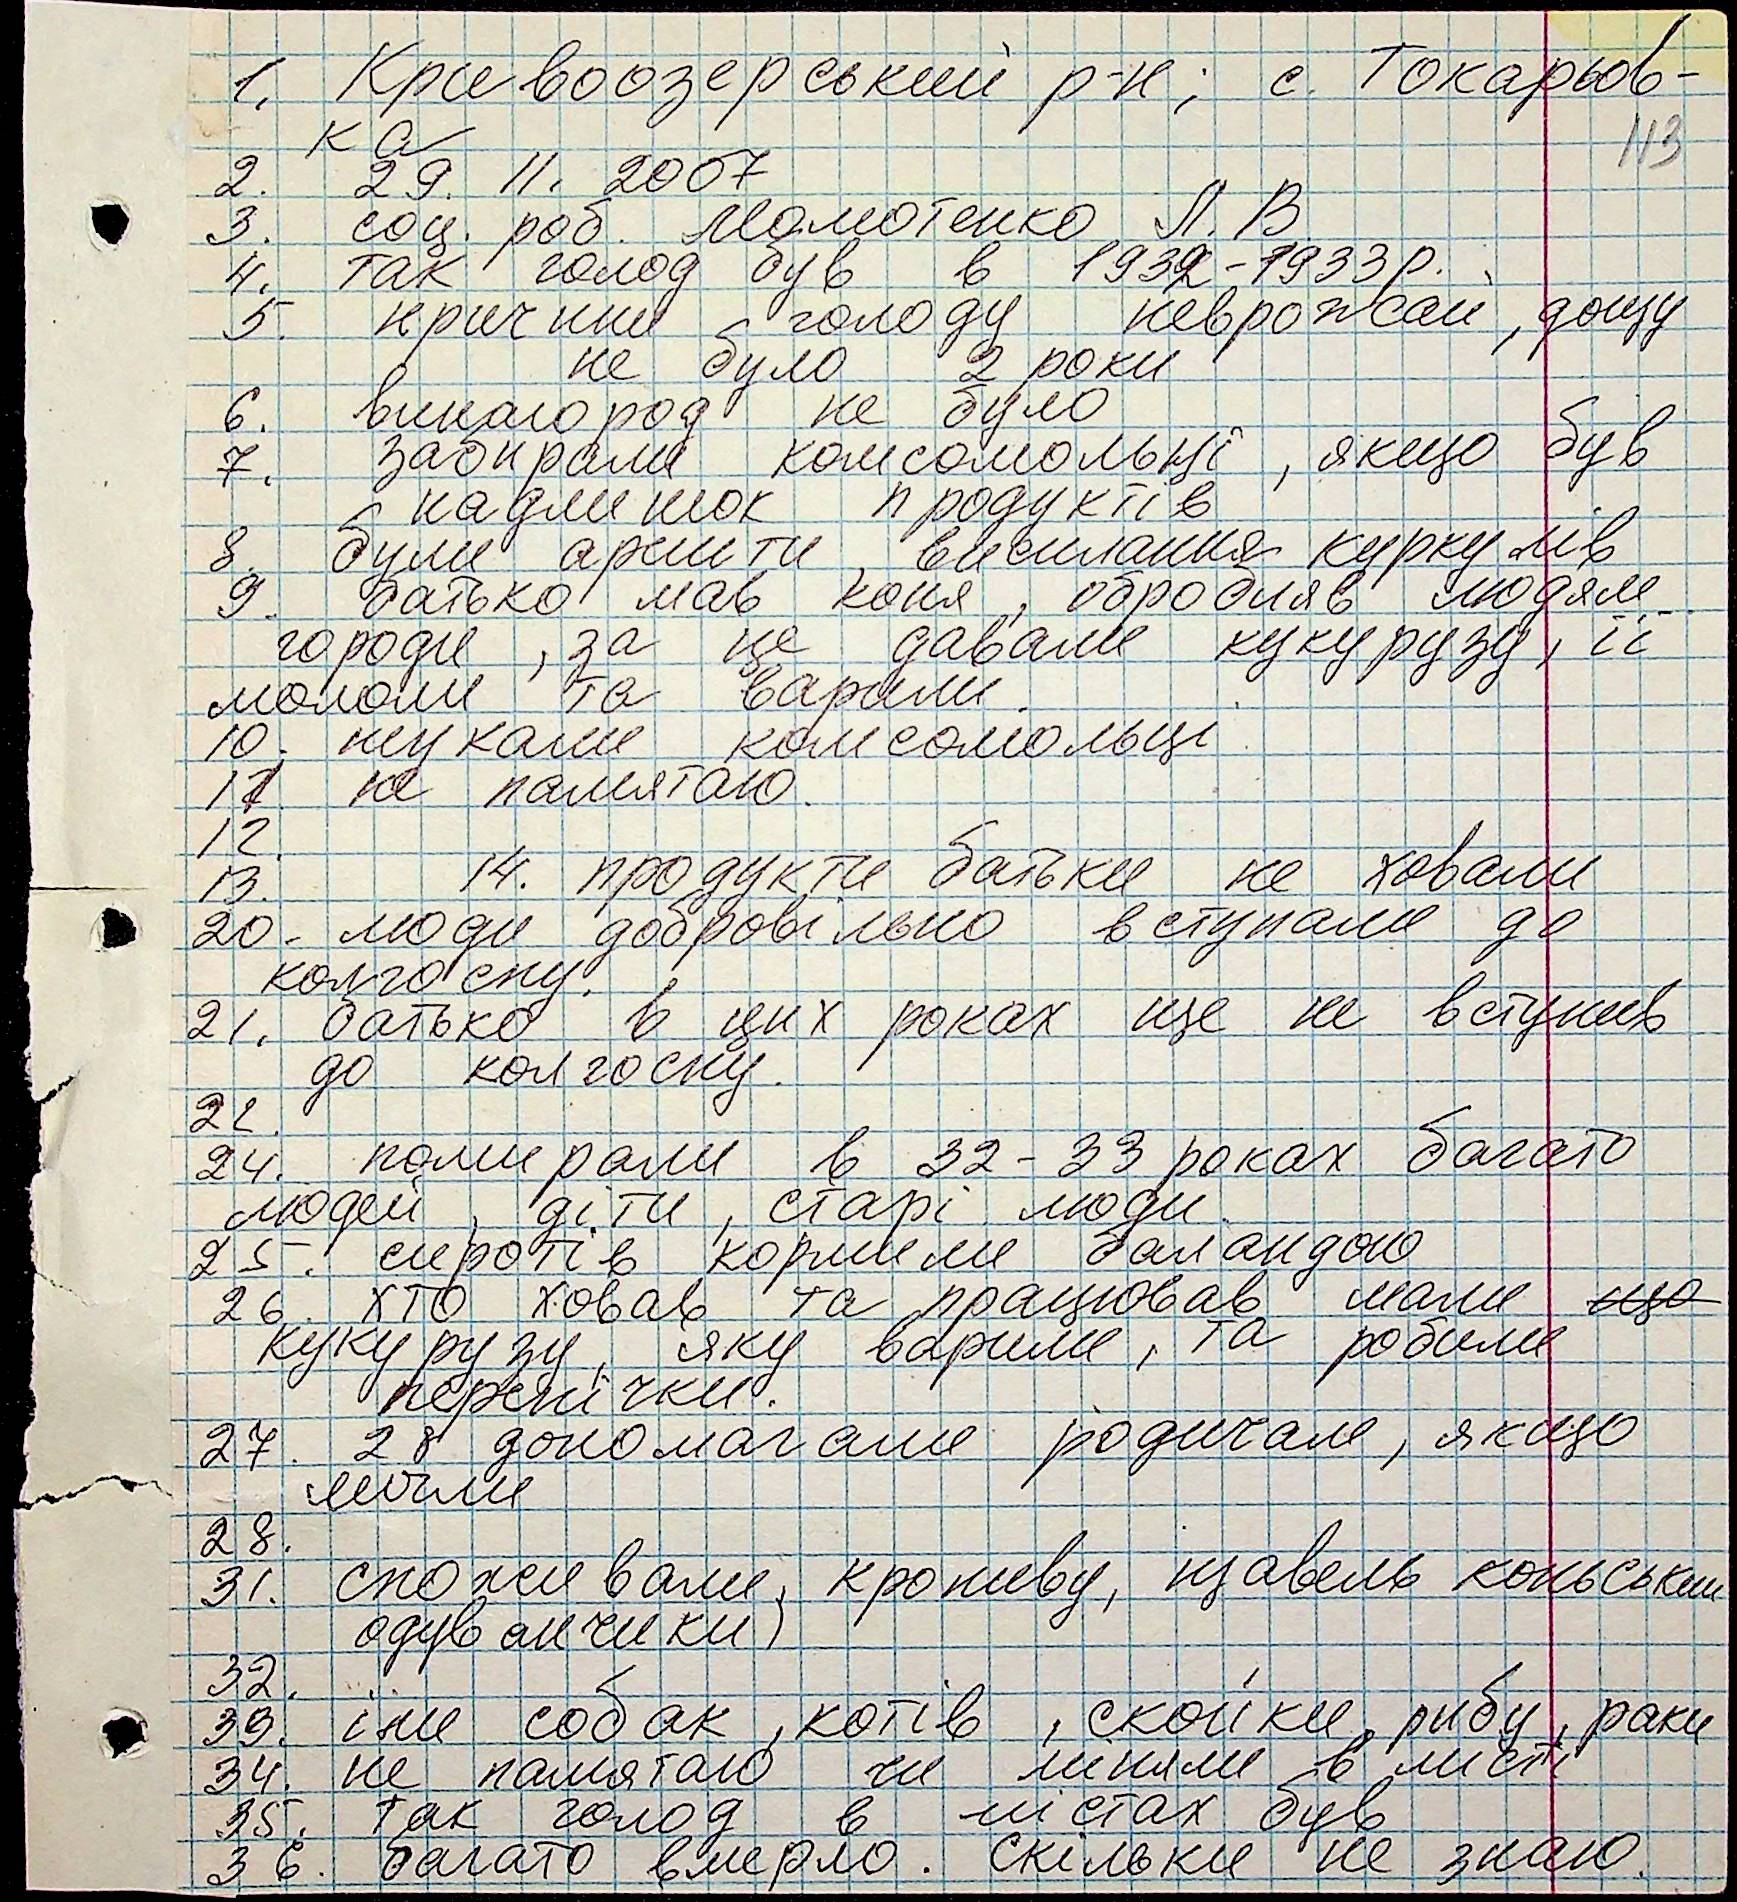 1. Кривоозерський р-н; с. Токарьов-
ка
113
2. 29. 11. 2007
3. соц. роб. Мамотенко Л. В
4. так голод був в 1932-1933р.
5. причини голоду неврожай, дощу
не було 2 роки
6. винагород не було
7. забирали комсомольці, якщо був
надлишок продуктів
8. були арешти, висилання куркулів
9. батько мав коня, обробляв людям
городи, за це давали кукурузу, її
мололи та варили.
10. шукали комсомольці.
11. не памятаю.
12.
13. 14. продукти батьки не ховали
20. люди добровільно вступали до
колгоспу.
21. батько в цих роках ще не вступив
до колгоспу.
22.
24. помирали в 32-33 роках багато
людей, діти, старі люди.
25. сиротів кормили баландою
26. хто ховав та працював мали що
кукурузу, яку варили, та робили
перепічки.
27. 28 допомагали родичам, якщо
могли
28.
31. споживали, кропиву, щавель коньський
одуванчики)
32.
33. їли собак, котів, скойки, рибу, раки
34. не памятаю чи міняли в місті
35. так голод в містах був
36. багато вмерло. скільки не знаю.